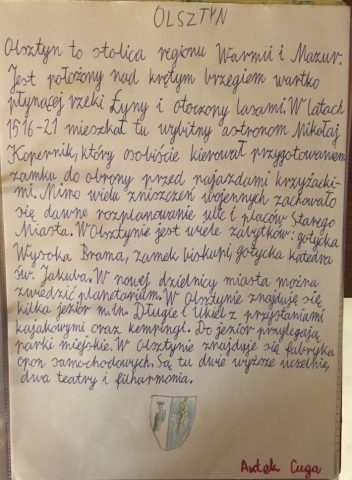 OLSZTYN
Olsztyn to stolica regionu Warmii i Mazur.
Jest położony nad krętym brzegiem wartko
płynącej rzeki Łyny i otoczony lasami. W latach
1516-21 mieszkał tu wybitny astronom Mikołaj
Kopernik, który osobiście kierował przygotowaniem
zamku do obrony przed najazdami krzyżacki-
mi. Mimo wielu zniszczeń wojennych zachowało
się dawne rozplanowanie ulic i placów Starego
Miasta. W Olsztynie jest wiele zabytków: gotycka
Wysoka Brama, zamek biskupi, gotycka katedra
św. Jakuba. W nowej dzielnicy miasta można
zwiedzić planetarium. W Olsztynie znajduję się
kilka jezior m.in. Długie i Ukiel z przystaniami
kajakowymi oraz kempingi. Do jezior przylegają
parki miejskie. W Olsztynie znajduje się fabryka
opon samochodowych. Są tu dwie wyższe uczelnie,
dwa teatry i filharmonia.
Antek Cuga